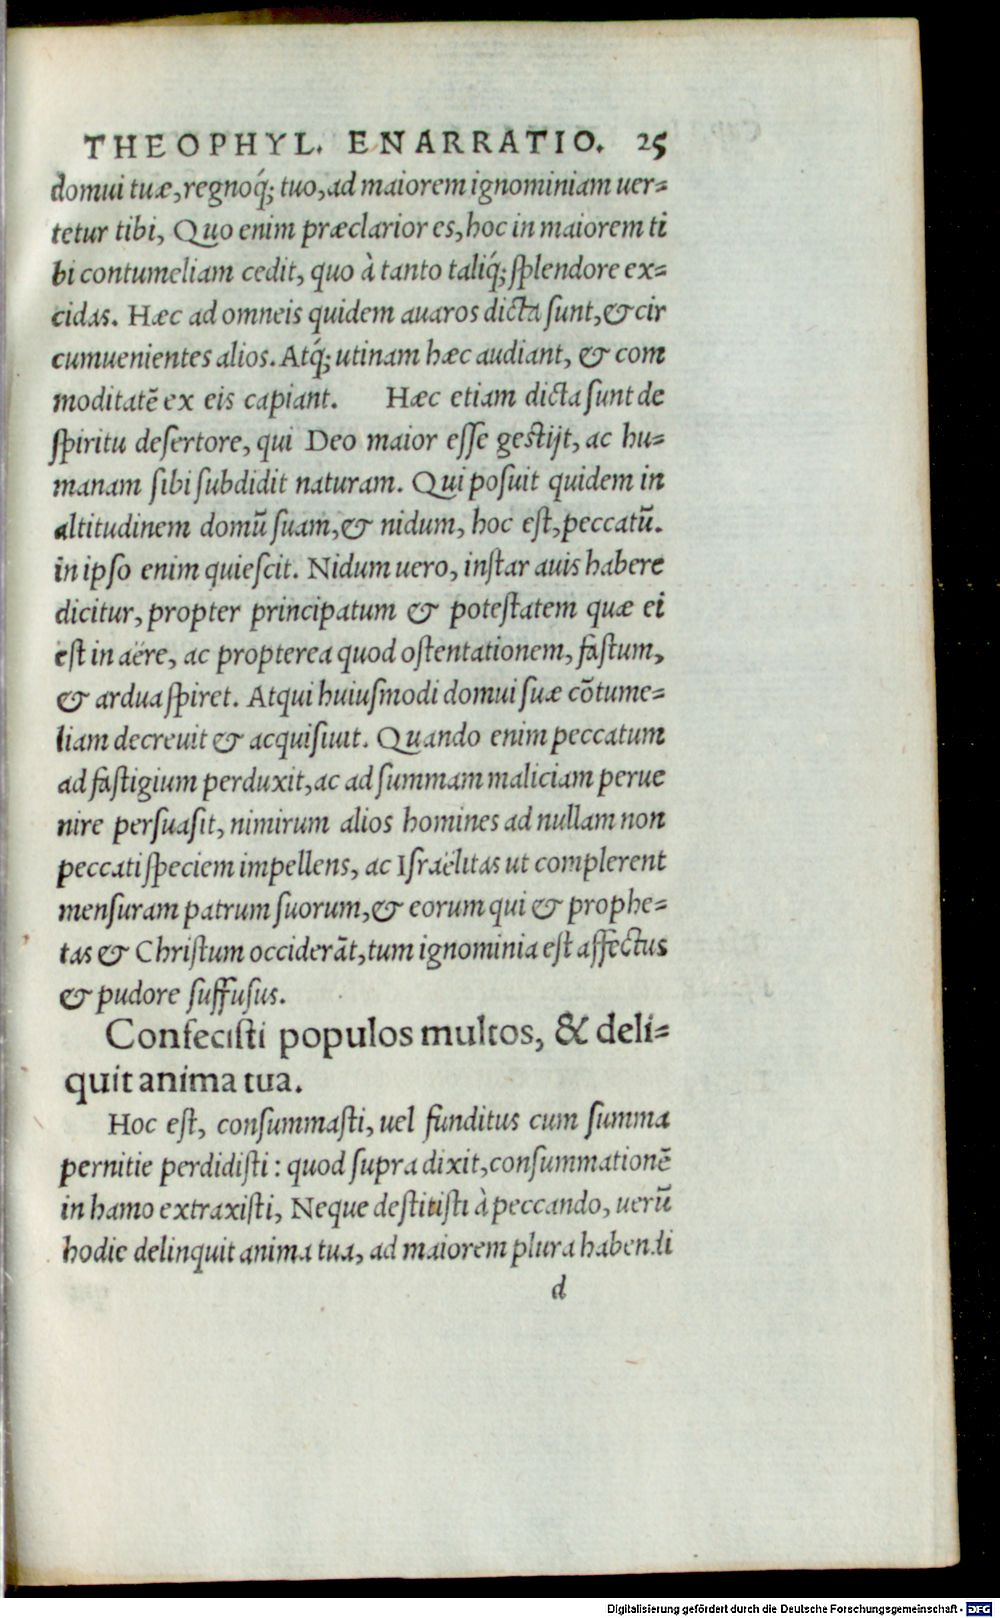 THEOPHYL. ENARRATIO. 25
domui tuæ, regnoq́; tuo, ad maiorem ignominiam uer-
tetur tibi, Quo enim præclarior es, hoc in maiorem ti
bi contumeliam cedit, quo à tanto taliq́; ſplendore ex-
cidas. Hæc ad omneis quidem auaros dicta ſunt, & cir
cumuenientes alios. Atq́; utinam hæc audiant, & com
moditatē ex eis capiant. Hæc etiam dicta ſunt de
ſpiritu deſertore, qui Deo maior eſſe geſtijt, ac hu-
manam ſibi ſubdidit naturam. Qui poſuit quidem in
altitudinem domū ſuam, & nidum, hoc eſt, peccatū.
in ipſo enim quieſcit. Nidum uero, inſtar auis habere
dicitur, propter principatum & poteſtatem quæ ei
eſt in aëre, ac propterea quod oſtentationem, faſtum,
& ardua ſpiret. Atqui huiuſmodi domui ſuæ cōtume-
liam decreuit & acquiſiuit. Quando enim peccatum
ad faſtigium perduxit, ac ad ſummam maliciam perue
nire perſuaſit, nimirum alios homines ad nullam non
peccati ſpeciem impellens, ac Iſraëlitas ut complerent
menſuram patrum ſuorum, & eorum qui & prophe-
tas & Chriſtum occiderāt, tum ignominia eſt affectus
& pudore ſuffuſus.
Confeciſti populos multos, & deli-
quit anima tua.
Hoc eſt, conſummaſti, uel funditus cum ſumma
pernitie perdidiſti: quod ſupra dixit, conſummationē
in hamo extraxiſti, Neque deſtitiſti à peccando, uerū
hodie delinquit anima tua, ad maiorem plura habendi
d
Digitalisierung gefördert durch die Deutsche Forschungsgemeinschaft - DFG